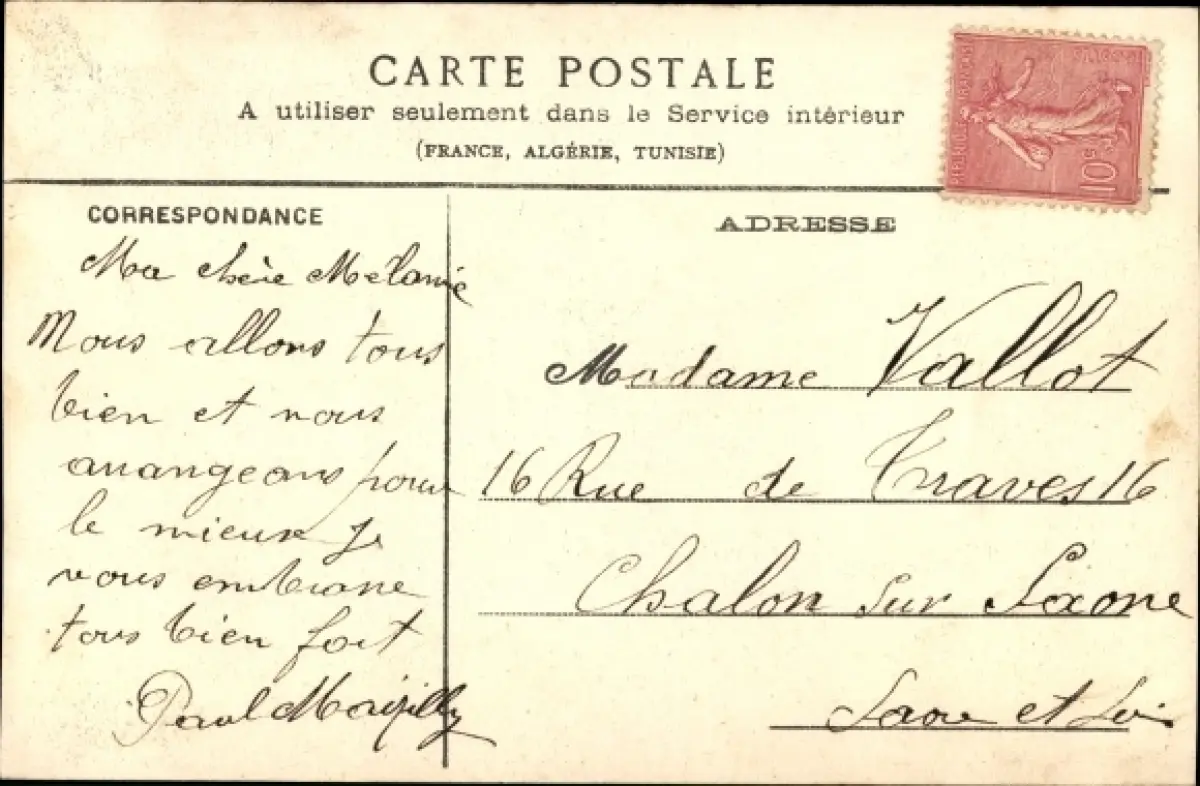 CARTE POSTALE
A utiliser seulement dans le Service intérieur
(FRANCE, ALGÉRIE, TUNISIE)
10c
CORRESPONDANCE
Ma chère Mélanie
Nous allons tous
bien et nous
arrangeons pour
le mieux je
vous embrasse
tous bien fort
Paul
ADRESSE
Madame Vallot
16 Rue de Traves 16
Chalon sur Saone
Saone et Loire